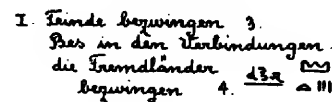 I. Feinde bezwingen 3.
Bes in den Verbindungen.
die Fremdländer
bezwingen 4. d3r